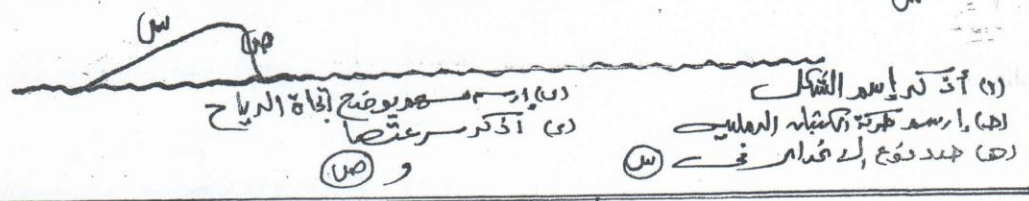 س
ص
(أ) أذكر إسم الشكل (ب) إرسم سهم يوضح إتجاه الرياح
(جـ) إرسم حركة الكثبان الرملية (د) أذكر سرعتها
(هـ) حدد نوع الانحدار فى س و ص